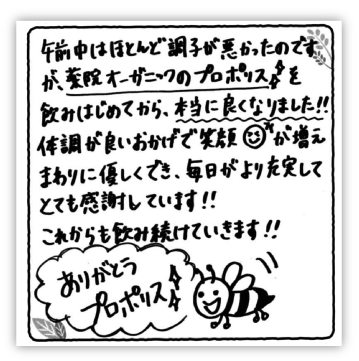 午前中はほとんど調子が悪かったのです
が、薬院オーガニックのプロポリスを
飲みはじめてから、本当に良くなりました!!
体調が良いおかげで笑顔が増え
まわりに優しくでき、毎日がより充実して
とても感謝しています!!
これからも飲み続けていきます!!
ありがとう
プロポリス